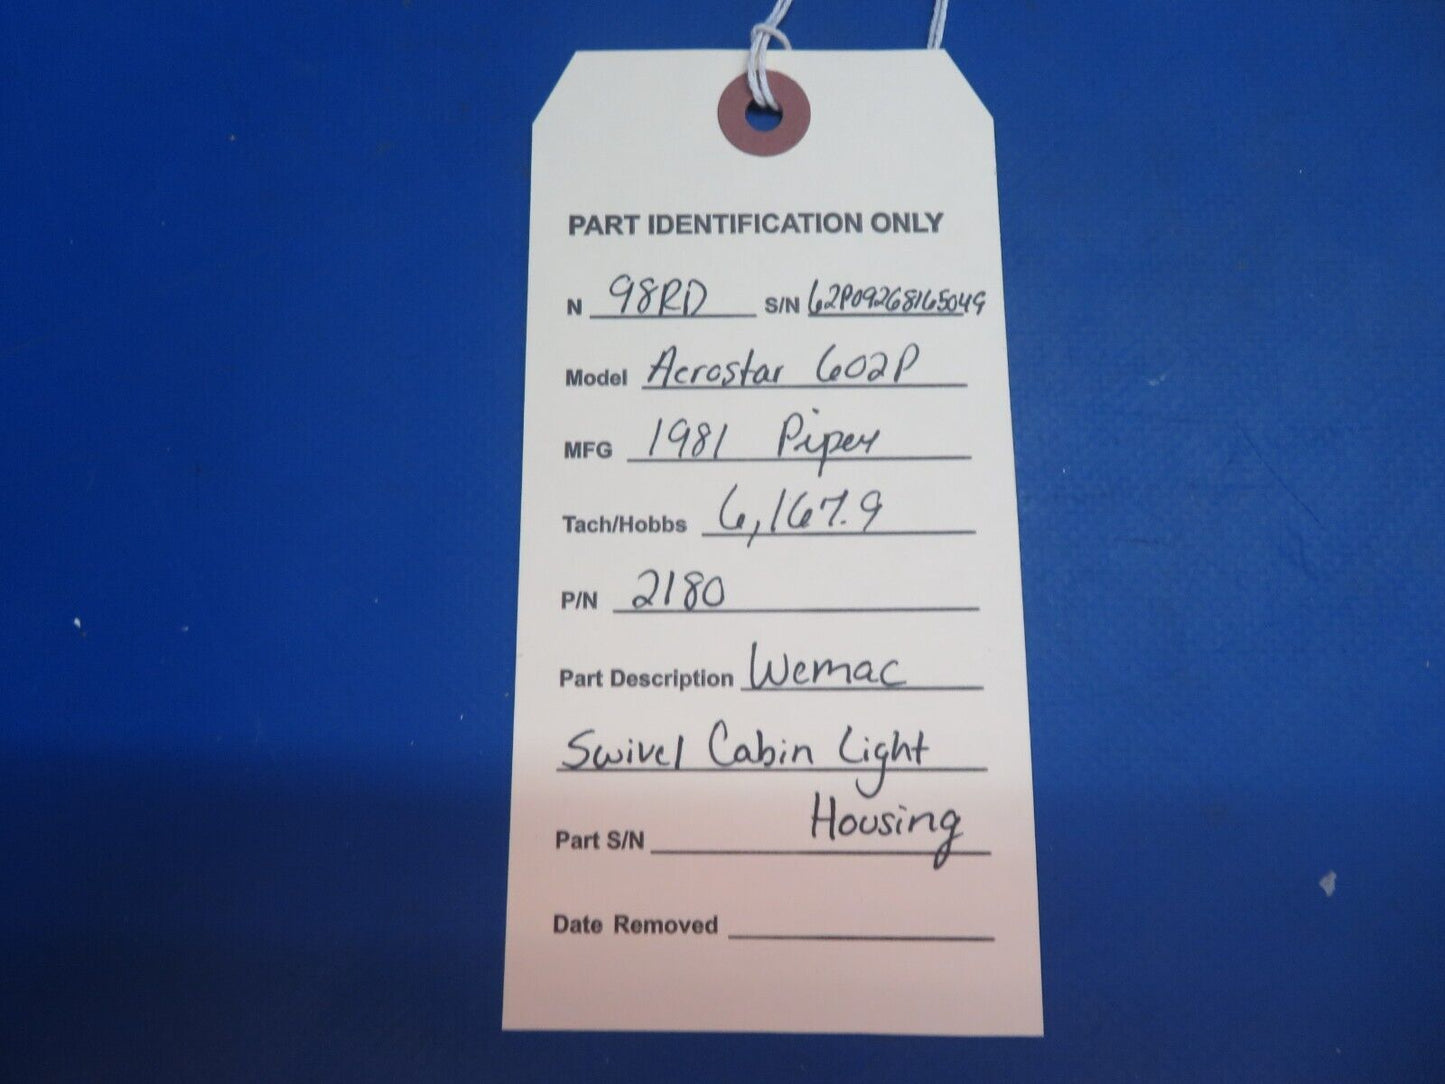 PART IDENTIFICATION ONLY
N 98RD S/N 62P09268165049
Model Aerostar 602P
MFG 1981 Piper
Tach/Hobbs 6,167.9
P/N 2180
Part Description Wemac
Swivel Cabin Light
Housing
Part S/N
Date Removed